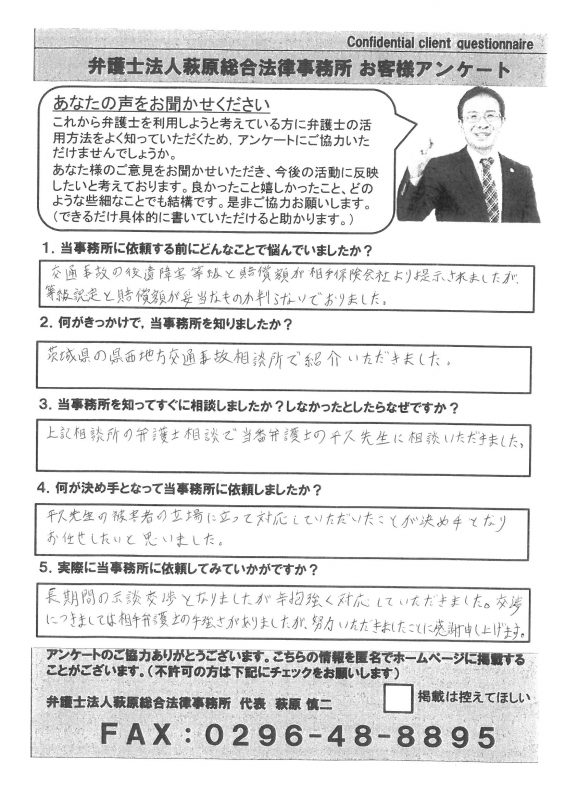 Confidential client questionnaire
弁護士法人萩原総合法律事務所 お客様アンケート
あなたの声をお聞かせください
これから弁護士を利用しようと考えている方に弁護士の活
用方法をよく知っていただくため，アンケートにご協力いた
だけませんでしょうか。
あなた様のご意見をお聞かせいただき、今後の活動に反映
したいと考えております。良かったこと嬉しかったこと、どの
ような些細なことでも結構です。是非ご協力お願いします。
（できるだけ具体的に書いていただけると助かります。）
１．当事務所に依頼する前にどんなことで悩んでいましたか？
交通事故の後遺障害等級と賠償額が相手保険会社より提示されましたが、
等級認定と賠償額が妥当なものか判らないでおりました。
２．何がきっかけで，当事務所を知りましたか？
茨城県の県西地方交通事故相談所で紹介いただきました。
３．当事務所を知ってすぐに相談しましたか？しなかったとしたらなぜですか？
上記相談所の弁護士相談で当番弁護士の先生に相談いただきました。
４．何が決め手となって当事務所に依頼しましたか？
先生の被害者の立場に立って対応していただいたことが決め手となり
お任せしたいと思いました。
５．実際に当事務所に依頼してみていかがですか？
長期間の示談交渉となりましたが辛抱強く対応していただきました。交渉
につきましては相手弁護士の手強さがありましたが、努力いただきましたことに感謝申し上げます。
アンケートのご協力ありがとうございます。こちらの情報を匿名でホームページに掲載する
ことがございます。（不許可の方は下記にチェックをお願いします）
弁護士法人萩原総合法律事務所 代表 萩原 慎二
掲載は控えてほしい
FAX：0296-48-8895